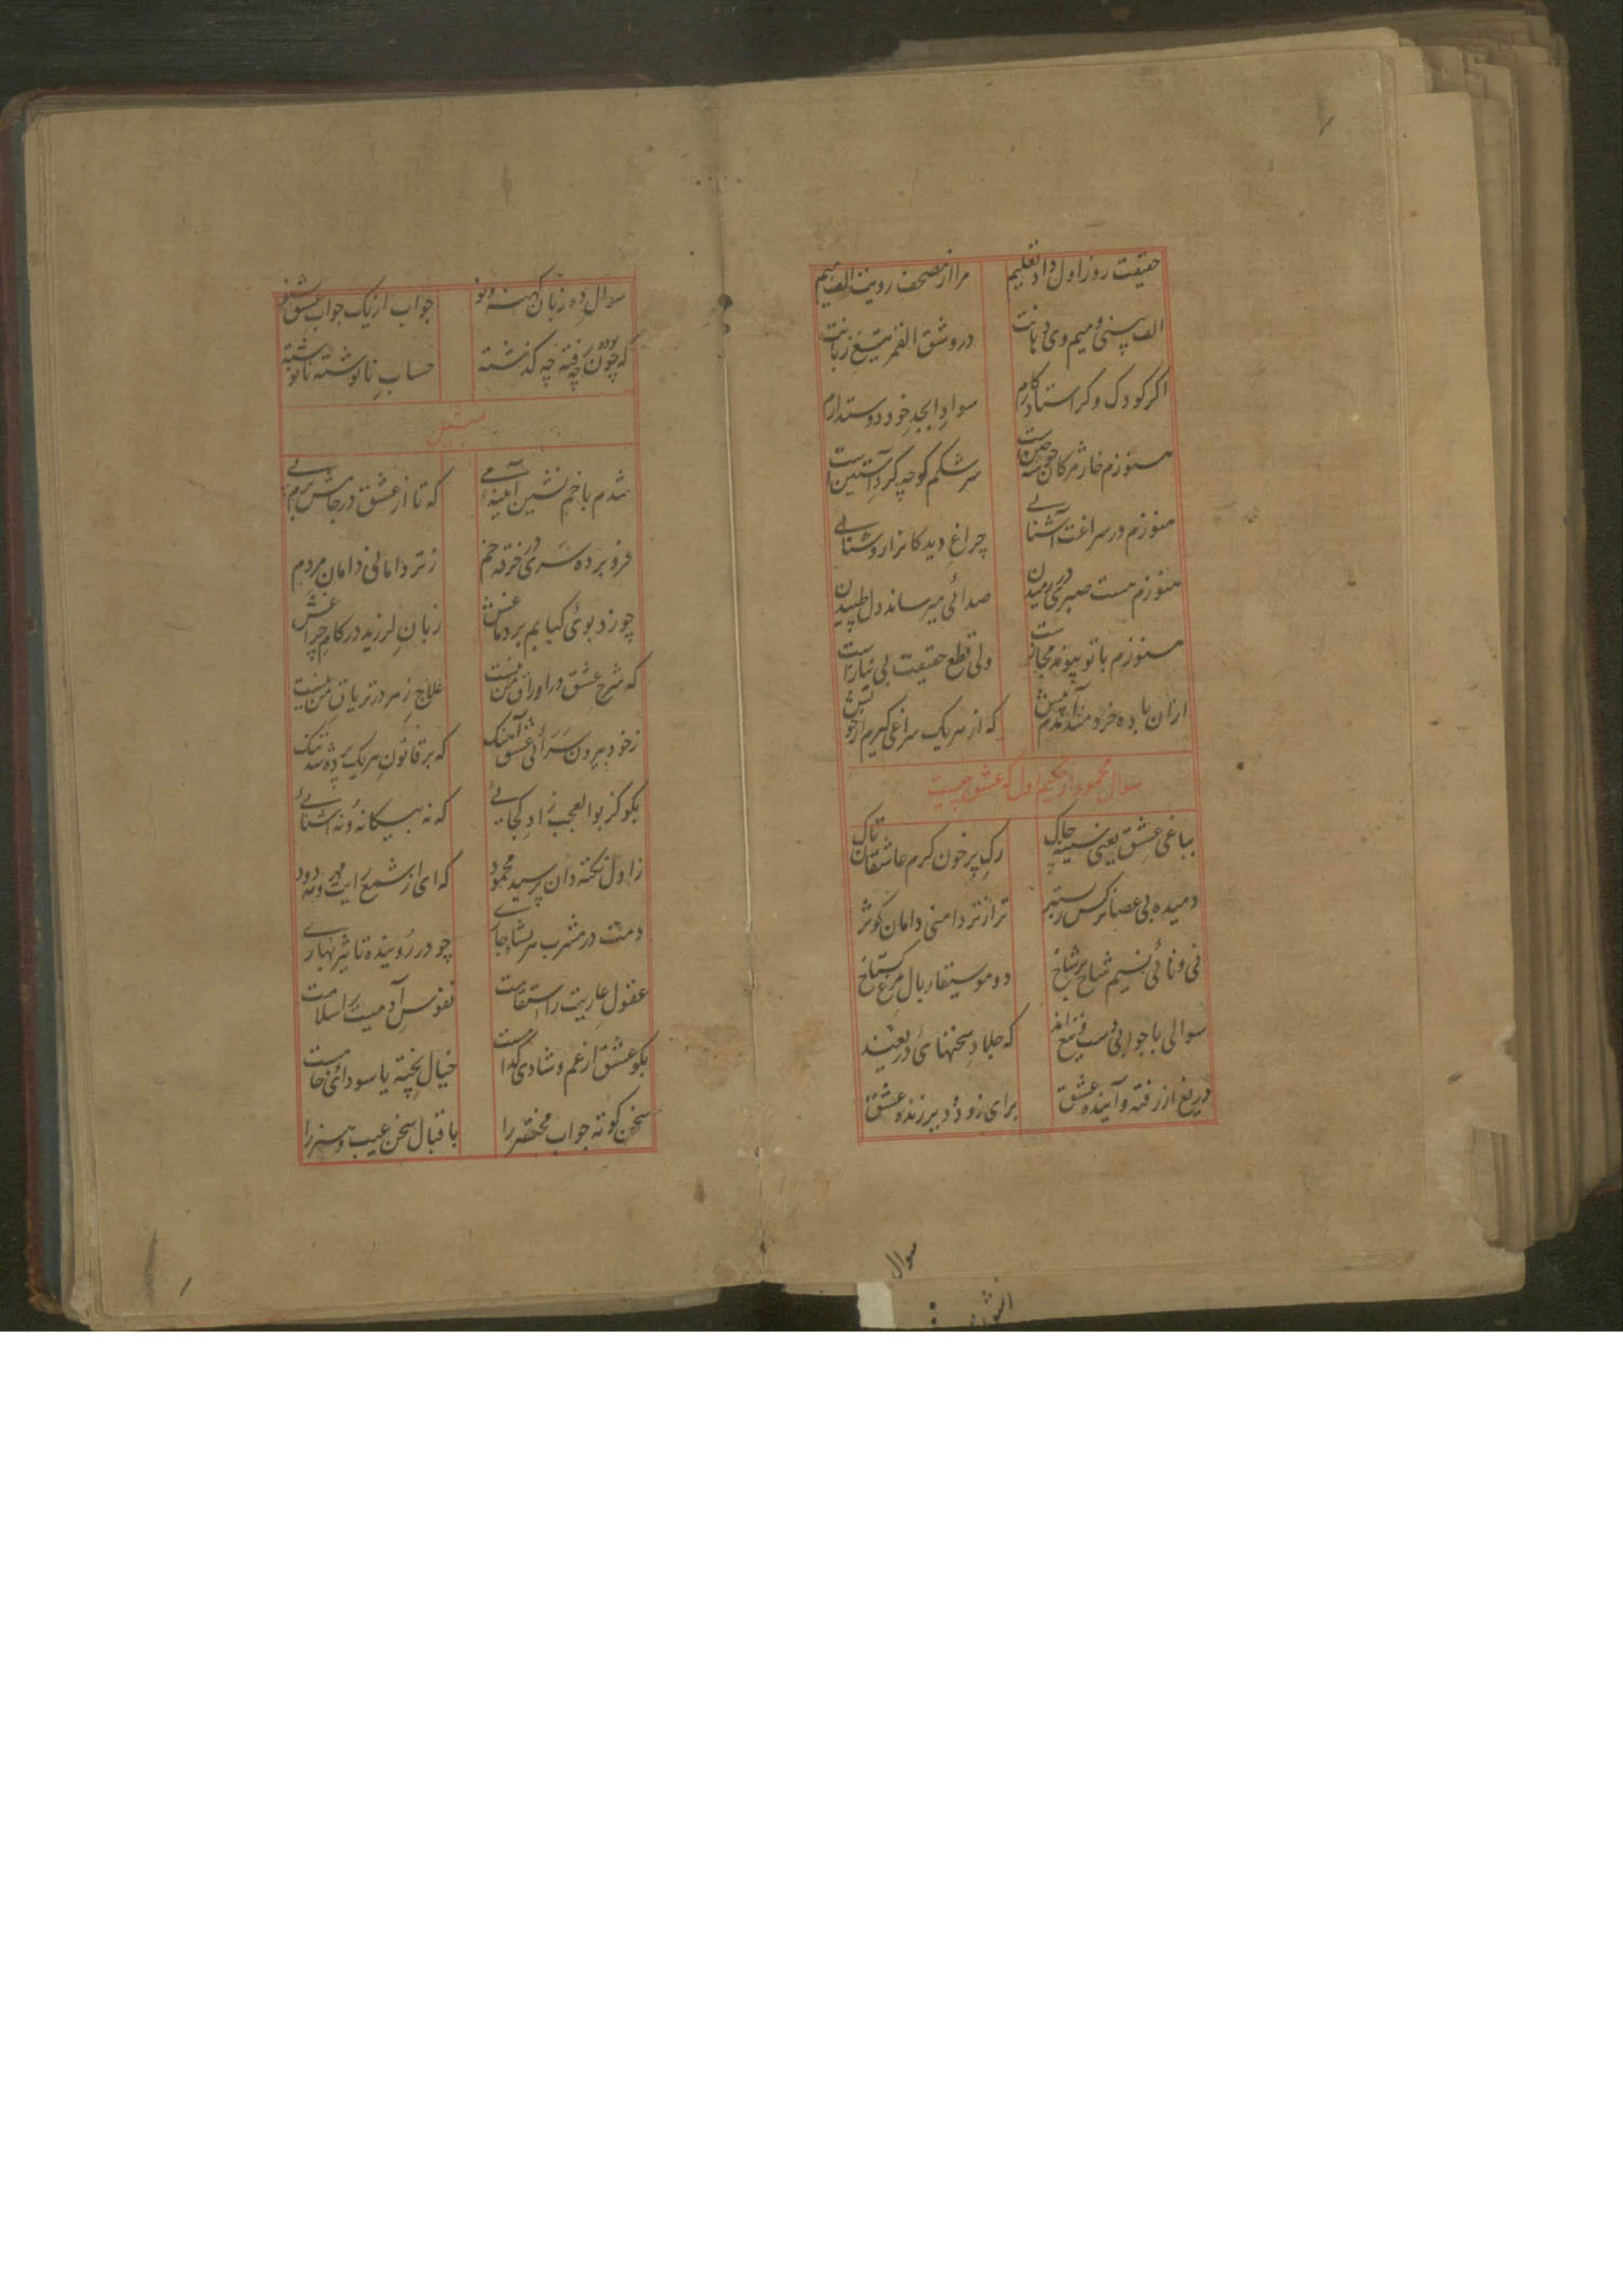 حقیقت روز اول داد تعلیم مرا از مصحف رویت الف میم
الف بینی و میم وی دهانت درو شق القمر تیغ زبانت
اگر کودک و گر استاد کارم سواد ابجد خود دوستدارم
هنوزم خار مژگان سرشکم کوچه گرد آستین است
هنوزم در سراغت آشنایی چراغ دیدگانرا روشنایی
هنوزم هست صبری در رمیدن صدائی میرساند دل طپیدن
هنوزم با تو پیوند مجازست ولی قطع حقیقت بی نیازست
ازان باده خردمند آمدم پیش که از هریک سراغی گیرم از خویش
سوال محمود از حکیم اول که عشق چیست
بباغی عشق یعنی سینه چاک رگ پر خون کرم عاشقان تاک
دمیده بی عصا نرگس ز بستر تر از تر دامنی دامان کوثر
نی و نائی نسیم شاخ بر شاخ دو موسیقار بال مرغ گستاخ
سوالی با جوابی که جلاد سخنهای
دریغ از رفته و آینده عشق برای زود و دیر زنده عشق
سوال
سوال ده زبان کهنه و نو جواب از یک جواب عشق بشنو
که چون بوده چه رفته چه گذشته حساب نانوشته نانوشته
تمثیل
شدم با خم نشین آیینه که تا از عشق در جامش
فرو برده سری در خرقه خم ز تر دامانی دامان مردم
چو زد بوئی کبابم بر دماغش زبان لرزید در کام چراغش
که شرح عشق در اوراق من نیست علاج زهر در تریاق من نیست
ز خود بیرون سرائی عشق آهنگ که بر قانون هریک پرده شد تنگ
بگو کز بوالعجب زاد کجایی که نه بیگانه و نه آشنایی
ز اول نکته دان پرسید محمود که ای از شمع رایت مهر و مه دود
دمت در مشرب هر شاخساری چو در روینده تاثیر بهاری
عقول عاریت را استقامت نفوس آدمیت را سلامت
بگو عشق از غم و شادی کدامست خیال پخته یا سودای خامست
سخن کوته جواب مختصر را باقبال سخن عیب و هنر را